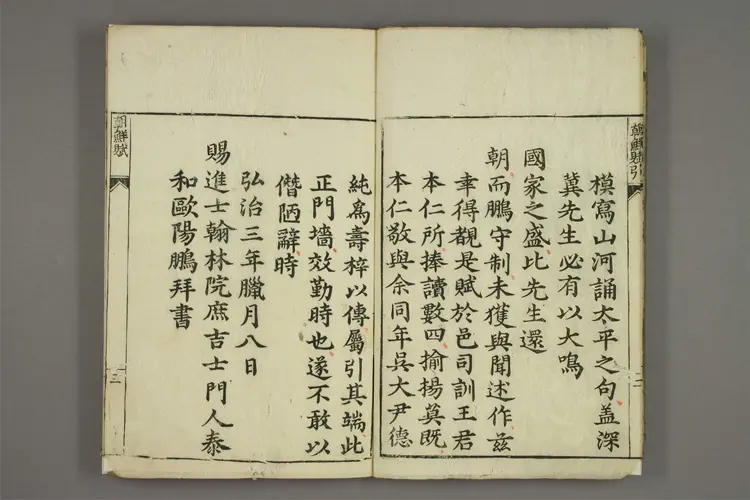 朝鮮賦引
模寫山河誦太平之句盖深
冀先生必有以大鳴
國家之盛比先生還
朝而鵬守制未獲與聞述作兹
幸得覩是賦於邑司訓王君
本仁所捧讀數四揄揚莫既
本仁敬與余同年吳大尹德
二
純爲壽梓以傳屬引其端此
正門墻效勤時也遂不敢以
僭陋辭時
弘治三年臘月八日
賜進士翰林院庶吉士門人泰
和歐陽鵬拜書
朝鮮賦
三